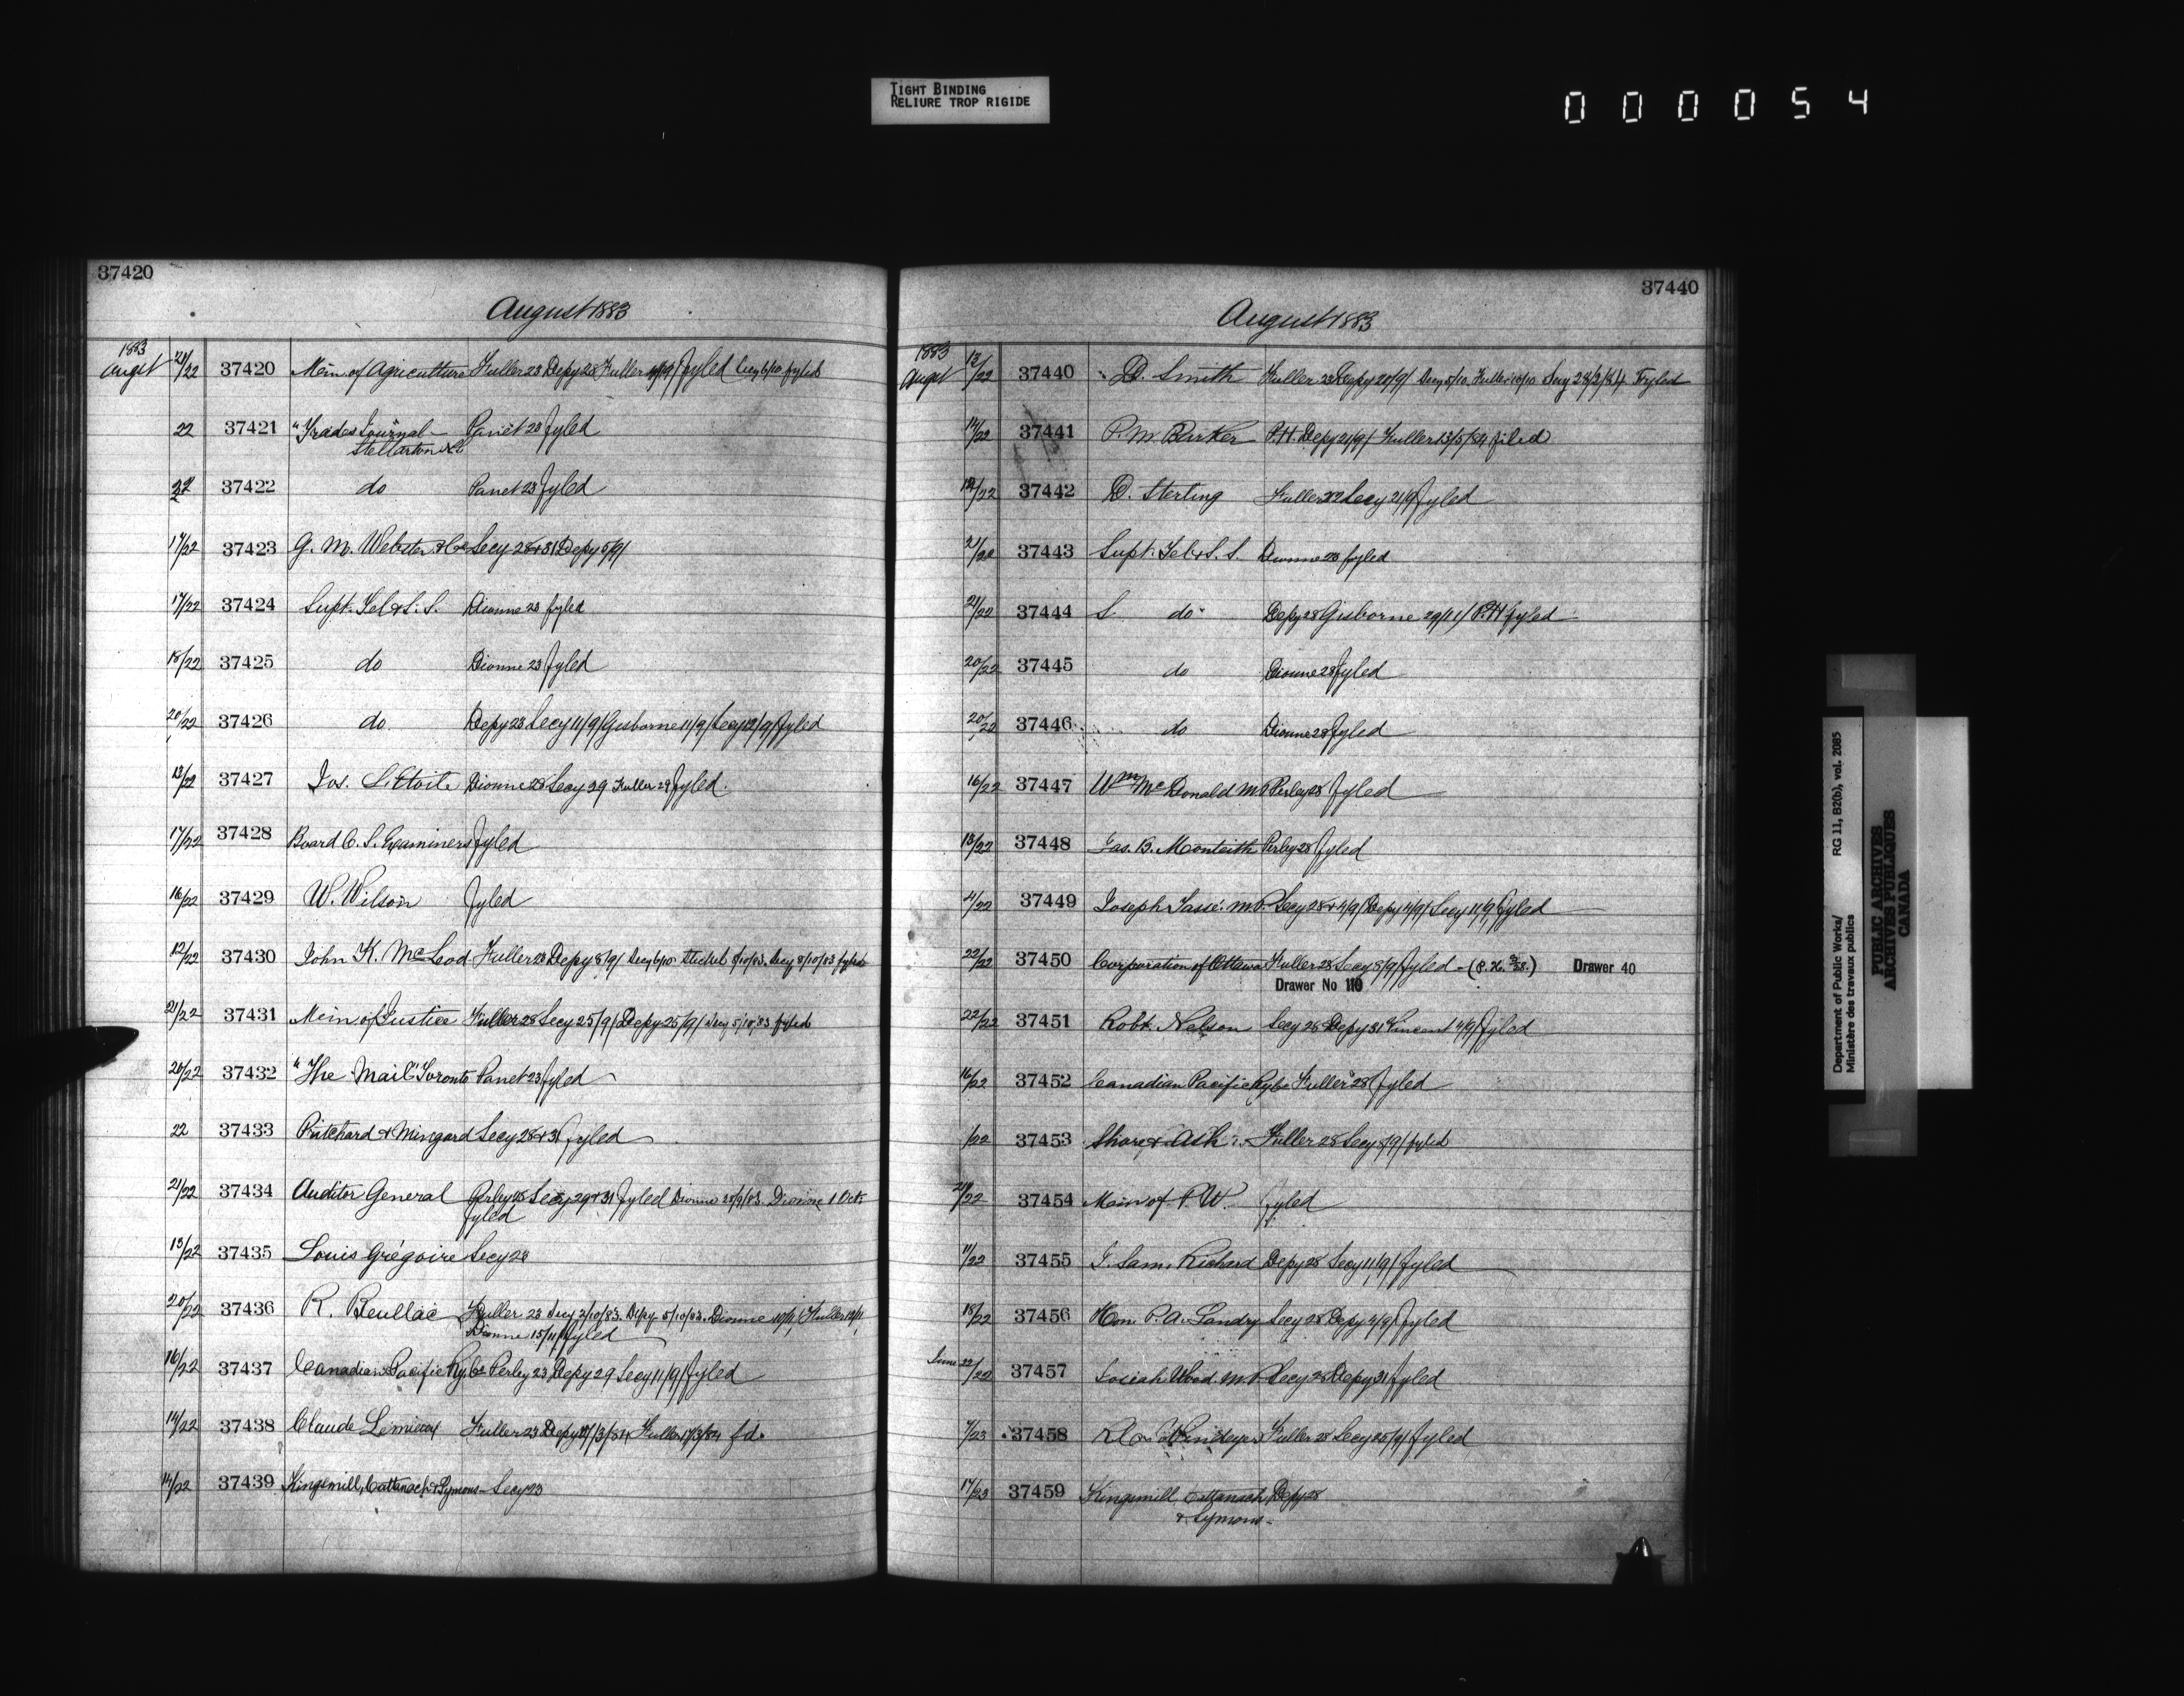 TIGHT BINDING
RELIURE TROP RIGIDE
000054
37420
August 1883
1883
Augst 21/22 37420 Min. of Agriculture Fuller 23 Depy 28 Fuller Fyled Secy 6/10 fyled
22 37421 "Trades Journal - Panet 23 Fyled
Stellarton
37422 do Panet 23 Fyled
17/22 37423 G. M. Webster & Co Secy 28 & 31 Depy 5/9/
17/22 37424 Supt. Tel & S. S. Dionne 23 fyled
18/22 37425 do Dionne 23 Fyled
20/22 37426 do Depy 23 Secy 11/9/ Gisborne 11/9/ Secy 12/9/ Fyled
13/22 37427 Jos. L. Etoile Dionne 28 Secy 29 Fuller 29 Fyled.
17/22 37428 Board C. S. Examiners Fyled
16/22 37429 W. Wilson Fyled
12/22 37430 John K. McLeod Fuller 23 Depy 8/9/ Secy 6/10 8/10/83. Secy 8/10/83 fyled
21/22 37431 Min of Justice Fuller 28 Secy 25/9/ Depy 25/9/ Secy 5/10/83 fyled
20/22 37432 "The Mail" Toronto Panet 23 Fyled
22 37433 Pritchard & Mingard Secy 28 & 31 Fyled
21/22 37434 Auditor General Perley 28 Secy 29 & 31 Fyled Dionne 28/9/83. Dionne 1 Oct.
fyled
13/22 37435 Louis Grégoire Secy 28
20/22 37436 R. Beullac Fuller 23 Secy 2/10/83. Depy 5/10/83. Dionne 10/11/ Fuller 12/11
Dionne 15/11/ Fyled
16/22 37437 Canadian Pacific Ry Co Perley 23 Depy 29 Secy 11/9/ Fyled
14/22 37438 Claude Lemieux Fuller 23 Depy 11/3/84 Fuller 17/3/84 fd.
14/22 37439 Kingsmill, Cattanach & Symons - Secy 23
37440
August 1883
1883
Augst 13/22 37440 D. Smith Fuller 23 Depy 20/9/ Secy 5/10 Fuller 10/10 Secy 28/2/84 Fyled
14/22 37441 P. M. Barker P.H. Depy 21/9/ Fuller 13/5/84 filed
37442 D. Sterling Fuller Secy 21/9 Fyled
37443 Supt. Tel & S. S. Dionne 23 fyled
21/22 37444 S do Depy 28 Gisborne 29/11/ P.H Fyled
20/22 37445 do Dionne 28 Fyled
20/22 37446 do Dionne 28 Fyled
16/22 37447 Wm McDonald M.P. Perley 28 Fyled
13/22 37448 Jas. B. Monteith Perley 28 Fyled
4/22 37449 Joseph Tassé. M.P. Secy 28 & 4/9/ Depy 4/9/ Secy 11/9/ Fyled
22/22 37450 Corporation of Ottawa Fuller 28 Secy 8/9/ Fyled - Drawer 40
Drawer No 110
22/22 37451 Robt. Nelson Secy 28 Depy 31 Vincent 4/9/ Fyled
16/22 37452 Canadian Pacific Ry Co Fuller 28 Fyled
/22 37453 Shore & Ash Fuller 28 Secy 8/9/ fyled
21/22 37454 Min of P. W. fyled
11/22 37455 F. Sam. Richard Depy 28 Secy 11/9/ Fyled
18/22 37456 Hon. P. A. Landry Secy 28 Depy 2/9/ Fyled
June 22/22 37457 Josiah Wood M.P. Secy 28 Depy 31 Fyled
7/23 37458 Windeyer Fuller 28 Secy 25/9/ Fyled
17/23 37459 Kingsmill, Cattanach Depy 28
& Symons -
Department of Public Works/ RG 11, B2(b), vol. 2085
Ministère des travaux publics
PUBLIC ARCHIVES
ARCHIVES PUBLIQUES
CANADA